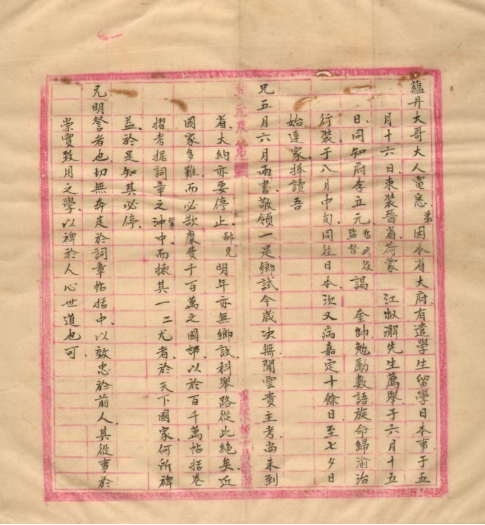 蘊丹大哥大人電悉弟因本省大府有遣學生留學日本事于五
月十六日束裝晉省荷蒙 江叔澥先生薦舉于六月十五
日同知府李立元 監督 謁 奎帥勉勵數語旋命歸渝治
行裝于八月中旬同往日本次又病嘉定十餘日至七夕日
始達家捧讀吾
兄五月六月兩書敬領一是鄉試今歲決無聞雲貴主考尚未到
省大約亦要停止 明年亦無鄉試科舉路從此絕矣近
國家多難而必欲糜費千百萬之國帑以於百千萬帖括卷
摺考据詞章之沖中而揀其一二尤者於天下國家何所裨
益於是知其必停
兄明詧者也切無奔走於詞章帖括中以效忠於前人其從事於
崇實致用之學以裨於人心世道也可